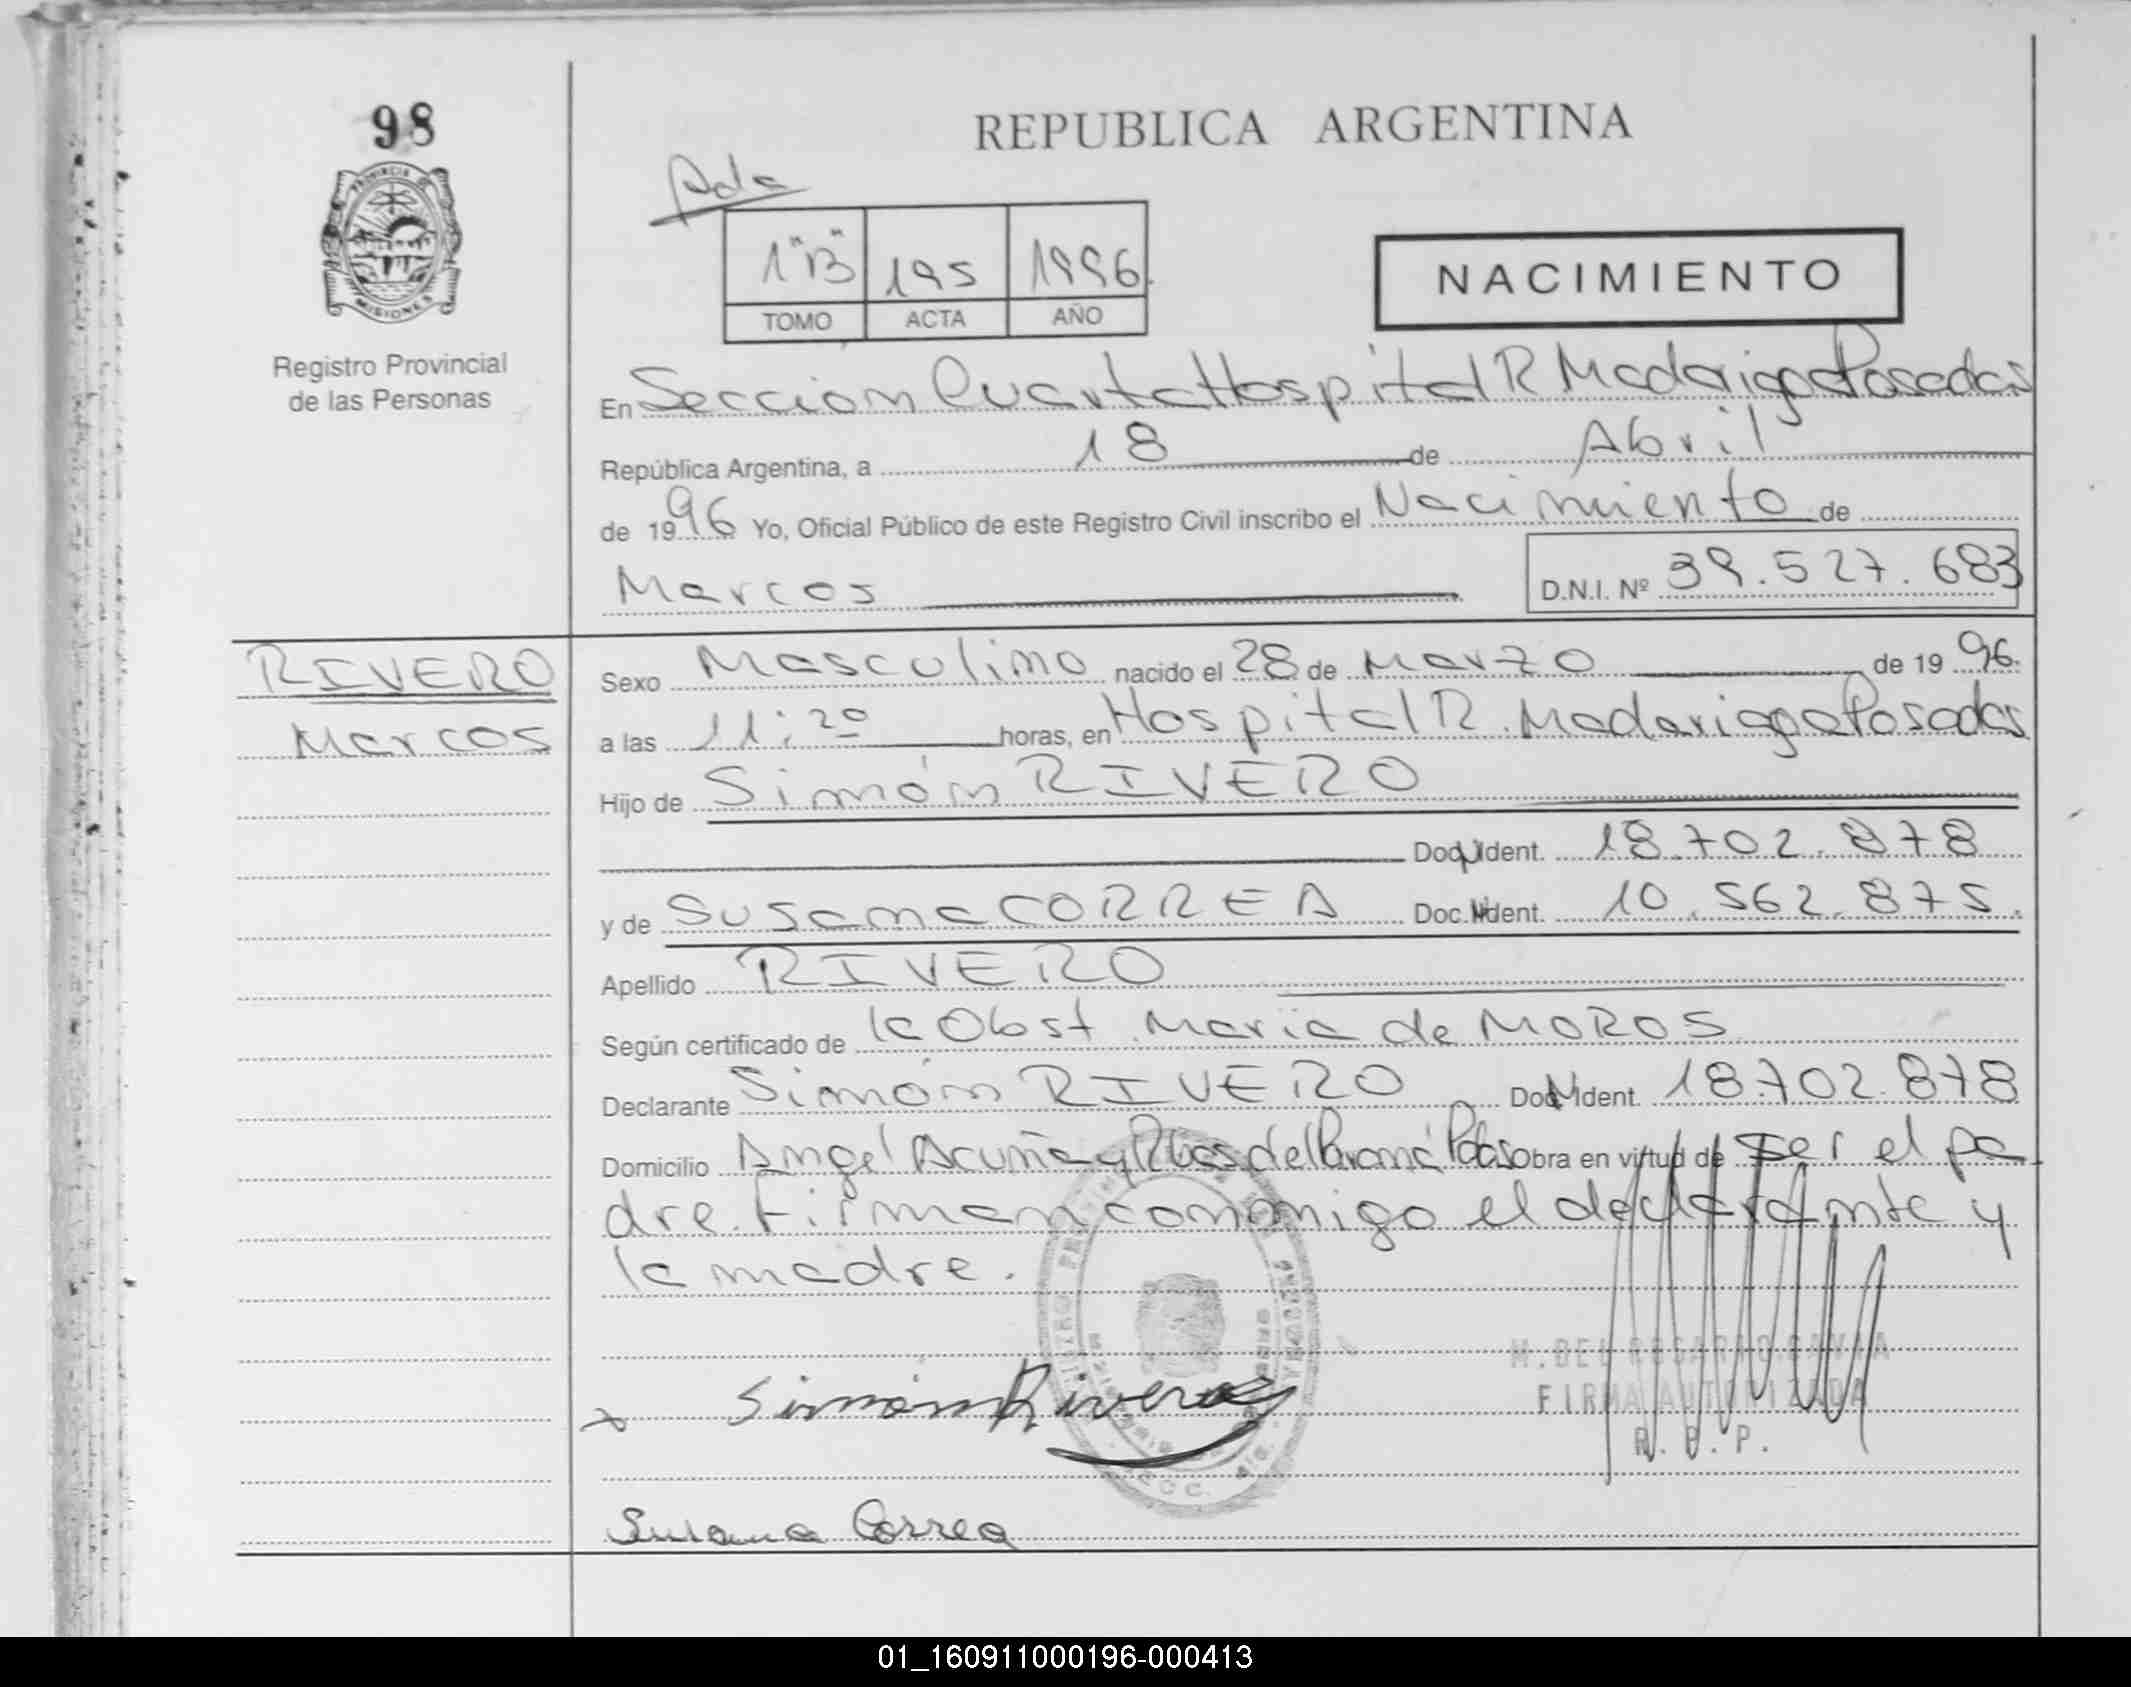 98
PROVINCIA DE
MISIONES
Registro Provincial
de las Personas
REPUBLICA ARGENTINA
1 "B" 195 1996
TOMO ACTA AÑO
NACIMIENTO
En Sección Cuarta Hospital R Madariaga Posadas
República Argentina, a 18 de Abril
de 1996 Yo, Oficial Público de este Registro Civil inscribo el Nacimiento de
Marcos D.N.I. Nº 39.527.683
RIVERO
Marcos
Sexo Masculino nacido el 28 de Marzo de 1996.
a las 11:20 horas, en Hospital R. Madariaga Posadas
Hijo de Simón RIVERO
Doc. Ident. 18.702.878
y de Susana CORREA Doc. Ident. 10.562.875.
Apellido RIVERO
Según certificado de la Obst. Maria de MOROS
Declarante Simón RIVERO Doc. Ident. 18.702.878
Domicilio Angel Acuña y del Paraná obra en virtud de ser el pa
dre. Firman conmigo el declarante y
la madre.
M. DEL ROSARIO
FIRMA AUTORIZADA
R. P. P.
Simón Rivero
Susana Correa
01_160911000196-000413